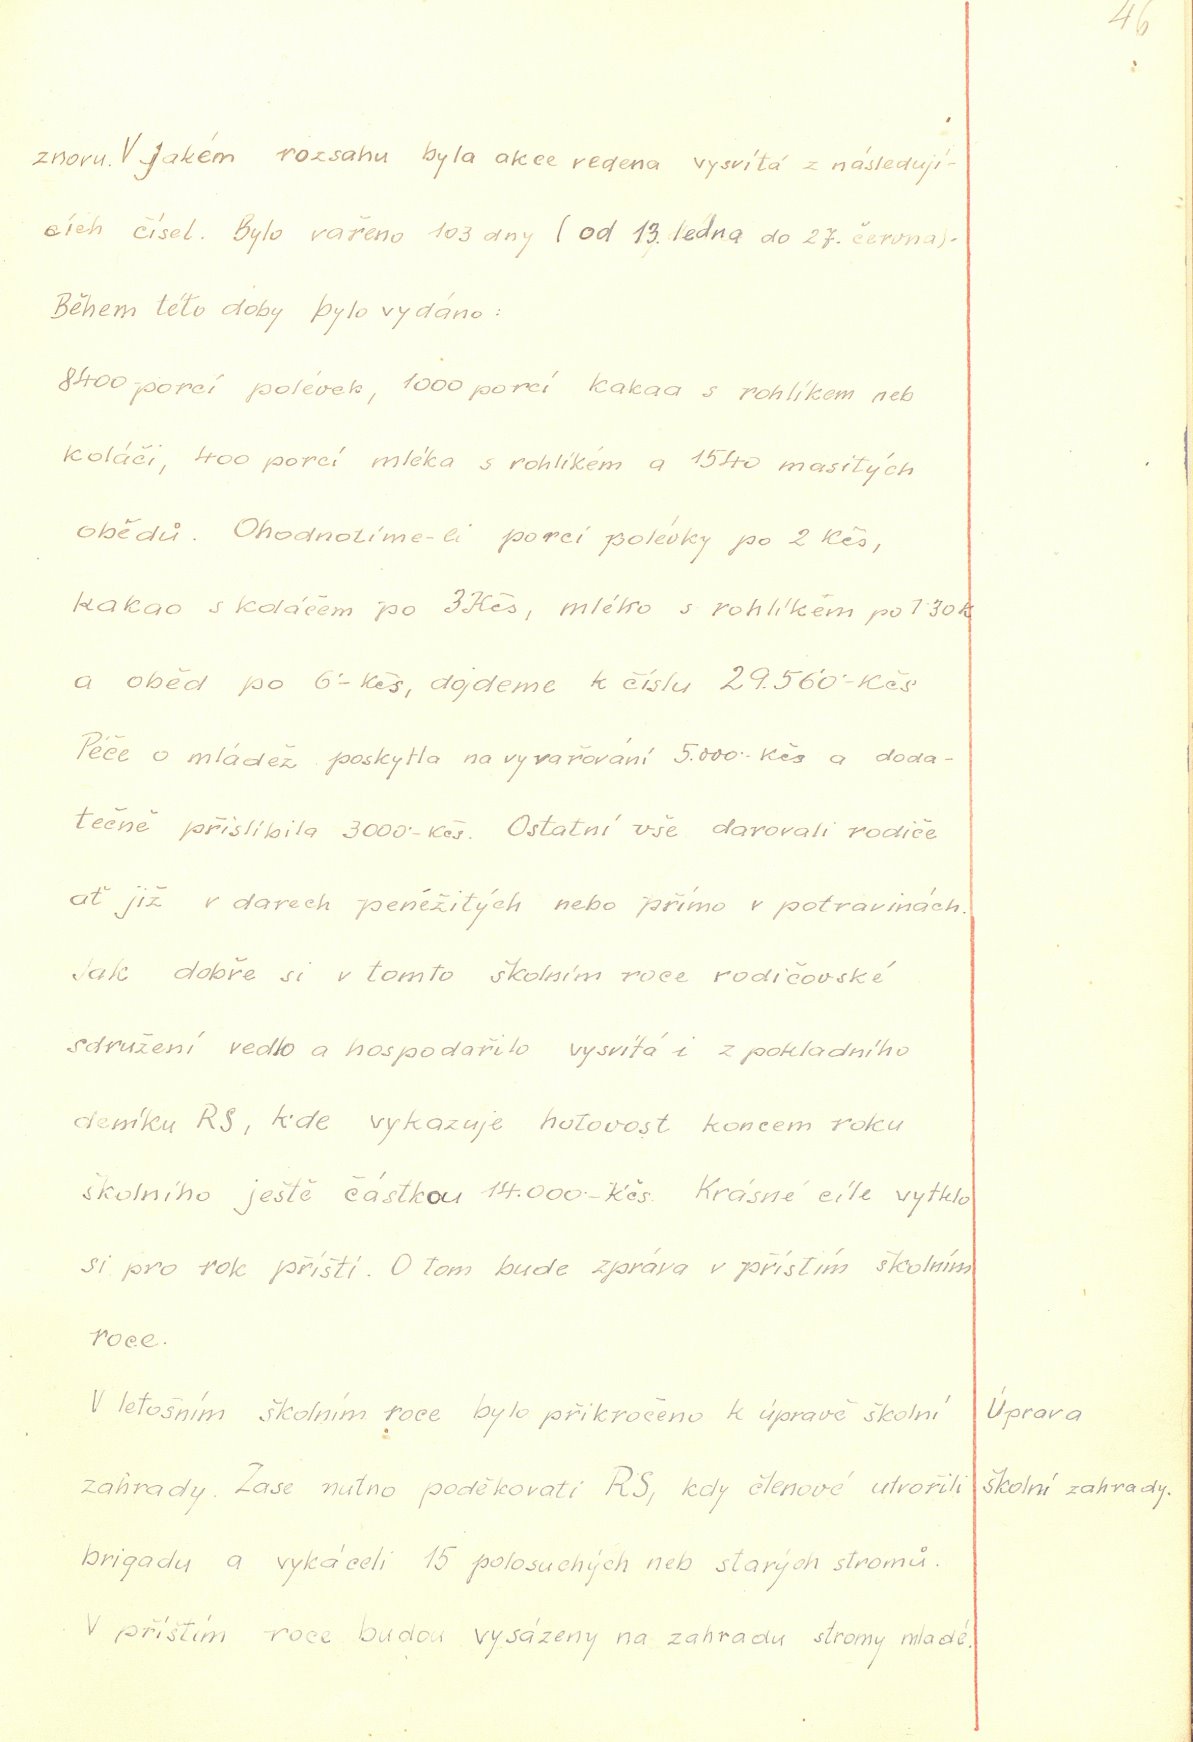 46
znovu. V jakém rozsahu byla akce vedena vysvítá z následují-
cích čísel. Bylo vařeno 103 dny (od 13. ledna do 27. června).
Během této doby bylo vydáno:
8400 porcí polévek, 1000 porcí kakaa s rohlíkem neb
koláči, 400 porcí mléka s rohlíkem a 1540 masitých
obědů. Ohodnotíme-li porci polévky po 2 Kčs,
kakao s koláčem po 3 Kčs, mléko s rohlíkem po 1·30 k
a oběd po 6·- Kčs, dojdeme k číslu 29.560·- Kčs
Péče o mládež poskytla na vyvařování 5.000·- Kčs a doda-
tečně přislíbila 3000·- Kčs. Ostatní vše darovali rodiče
ať již v darech peněžitých nebo přímo v potravinách.
Jak dobře si v tomto školním roce rodičovské
sdružení vedlo a hospodařilo vysvítá i z pokladního
deníku RS, kde vykazuje hotovost koncem roku
školního ještě částkou 14.000·- Kčs. Krásné cíle vytklo
si pro rok příští. O tom bude zpráva v příštím školním
roce.
V letošním školním roce bylo přikročeno k úpravě školní
Úprava
zahrady. Zase nutno poděkovati RS, kdy členové utvořili
školní zahrady.
brigadu a vykáceli 15 polosuchých neb starých stromů.
V příštím roce budou vysázeny na zahradu stromy mladé.